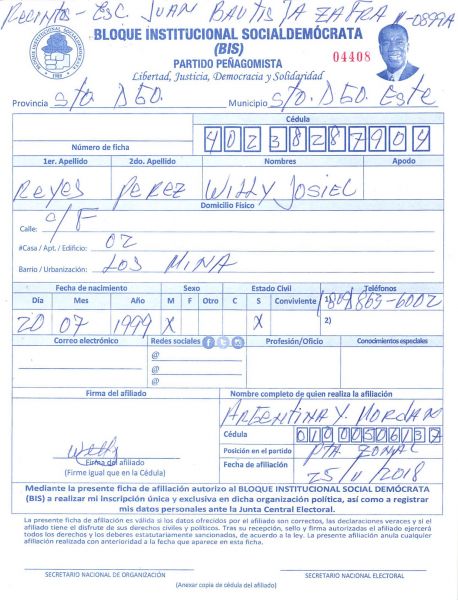 Recinto- Esc. JUAN BAUTISTA ZAFRA #-0899A
BLOQUE INSTITUCIONAL SOCIALDEMÓCRATA
(BIS)
04408
PARTIDO PEÑAGOMISTA
Libertad, Justicia, Democracia y Solidaridad
Provincia Sto. Dgo. Municipio Sto. Dgo. Este
Cédula
Número de ficha 40238287904
1er. Apellido 2do. Apellido Nombres Apodo
REYES PEREZ WILLY JOSIEL
Domicilio Físico
Calle: O/F
#Casa / Apt. / Edificio: 02
Barrio / Urbanización: LOS MINA
Fecha de nacimiento Sexo Estado Civil Teléfonos
Día Mes Año M F Otro C S Conviviente 1) (809) 869-6002
20 07 1999 X X 2)
Correo electrónico Redes sociales Profesión/Oficio Conocimientos especiales
@
@
@
Firma del afiliado Nombre completo de quien realiza la afiliación
ARGENTINA Y. MORDAN
Cédula 01900506137
Willy
Firma del afiliado
(Firme igual que en la Cédula)
Posición en el partido PTA ZONAL
Fecha de afiliación 25/11/2018
Mediante la presente ficha de afiliación autorizo al BLOQUE INSTITUCIONAL SOCIAL DEMÓCRATA
(BIS) a realizar mi inscripción única y exclusiva en dicha organización política, así como a registrar
mis datos personales ante la Junta Central Electoral.
La presente ficha de afiliación es válida si los datos ofrecidos por el afiliado son correctos, las declaraciones veraces y si el
afiliado tiene el disfrute de sus derechos civiles y políticos. Tras su revisión, sello y firma autorizadas el afiliado ejercerá
todos los derechos y los deberes estatutariamente sancionados, de acuerdo a la ley. La presente afiliación anula cualquier
afiliación realizada con anterioridad a la fecha que aparece en esta ficha.
SECRETARIO NACIONAL DE ORGANIZACIÓN SECRETARIO NACIONAL ELECTORAL
(Anexar copia de cédula del afiliado)